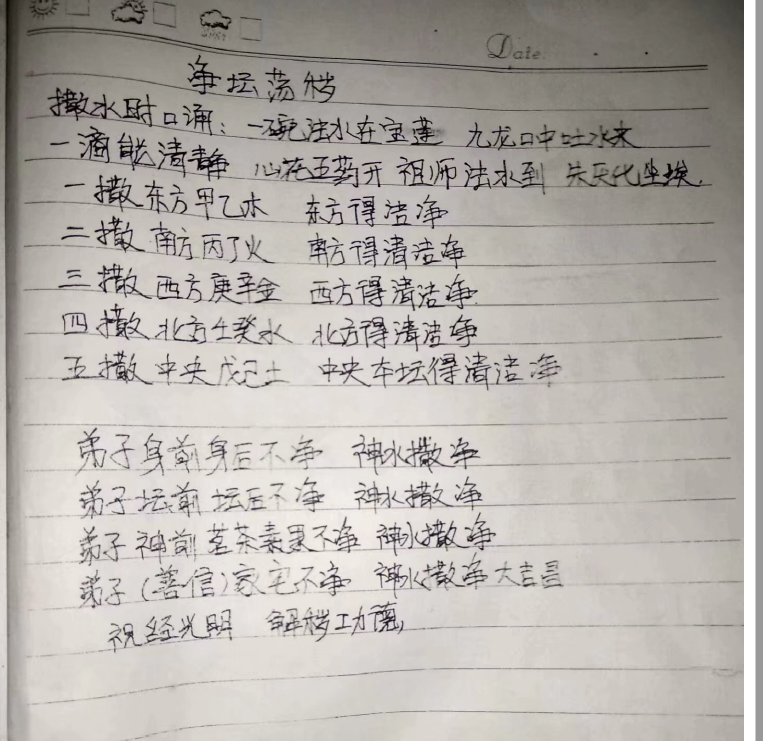 Date
净坛荡秽
撒水时口诵：一碗法水在宝莲 九龙口中吐水来
一滴能清静 心花五药开 祖师法水到 朱灭化尘埃
一撒东方甲乙木 东方得洁净
二撒南方丙丁火 南方得清洁净
三撒西方庚辛金 西方得清洁净
四撒北方壬癸水 北方得清洁净
五撒中央戊己土 中央本坛得清洁净
弟子身前身后不净 神水撒净
弟子坛前坛后不净 神水撒净
弟子神前茗茶素果不净 神水撒净
弟子（善信）家宅不净 神水撒净大吉昌
祝经光明 解秽功德